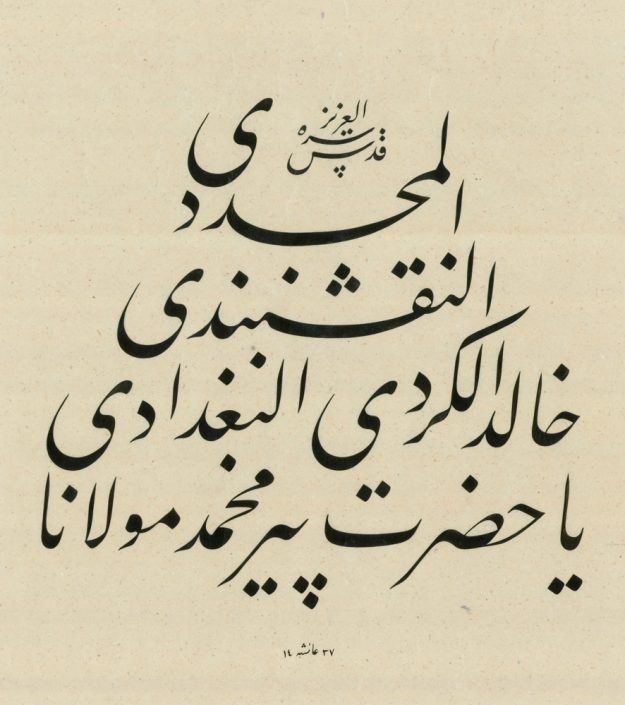 یا حضرت پیر محمد مولانا
خالد الکردی البغدادی
النقشبندی
المجددی
قدس سره
العزیز
١٤ عائشه ٣٧